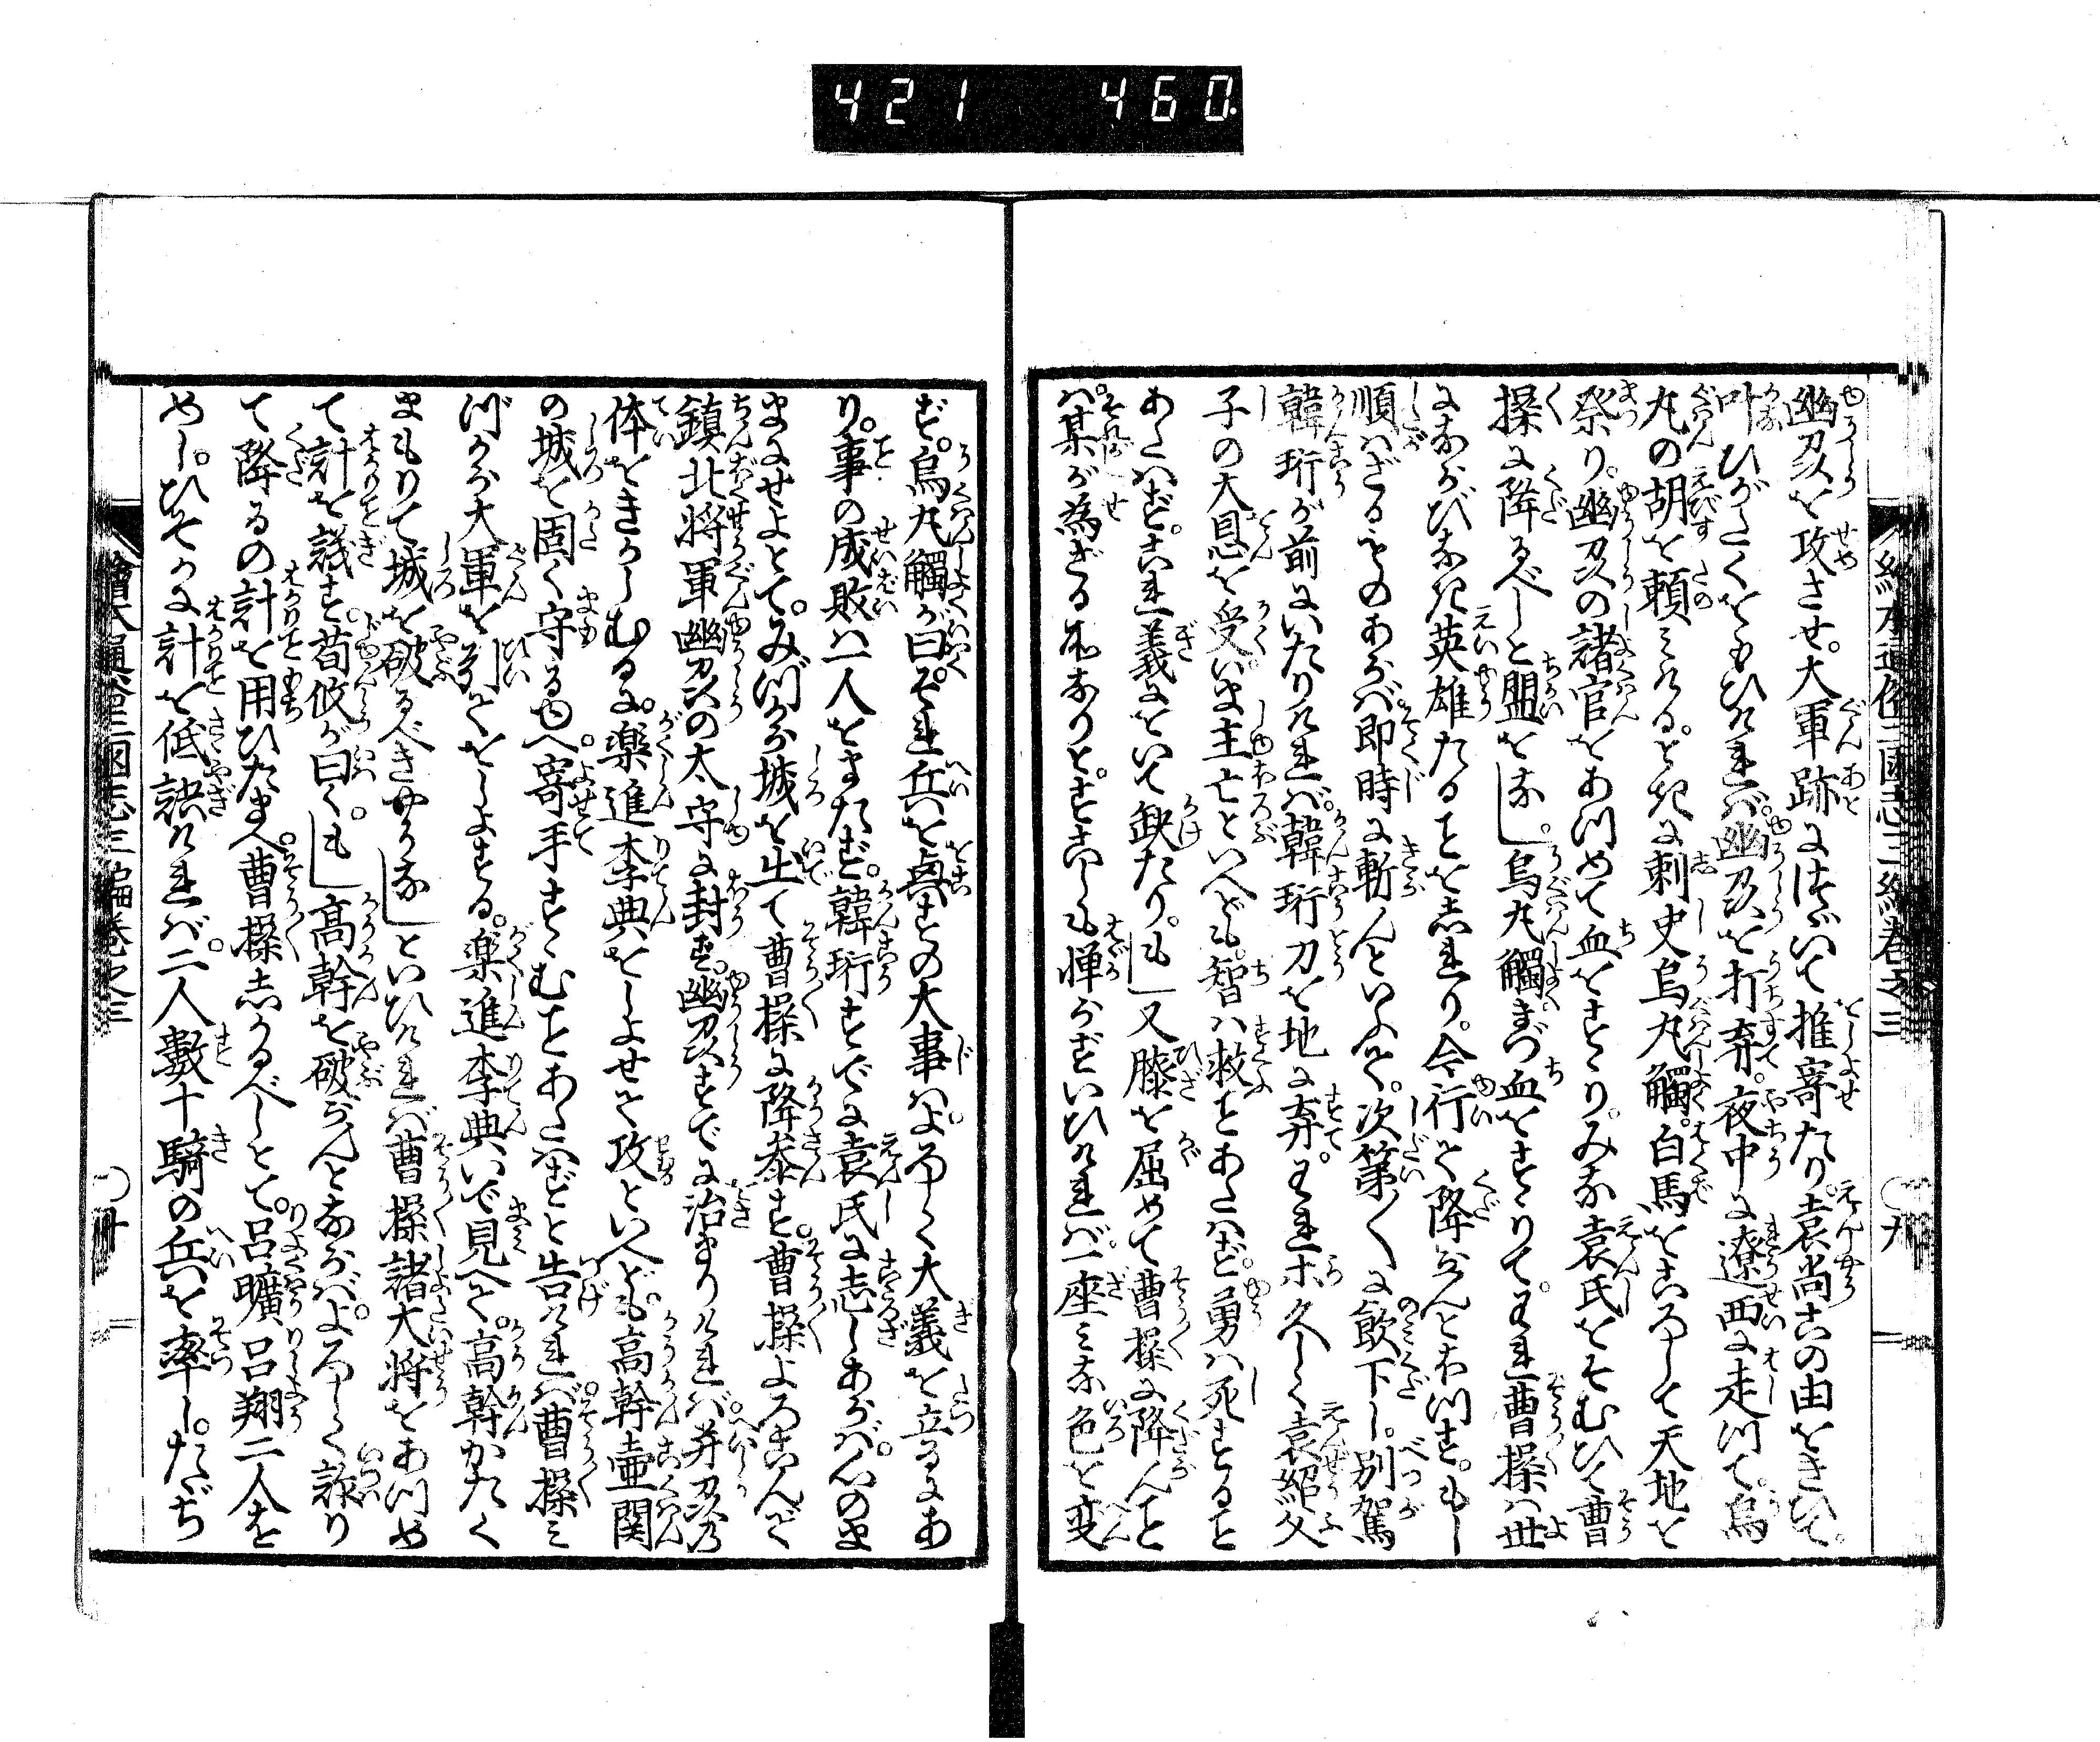 421 460
絵本通俗三國志三編巻之三 〇九
幽州を攻させ。大軍跡につゞいて推寄たり。袁尚この由をきひて。
叶ひがたくをもひければ。幽州を打弃。夜中に遼西に走つて。烏
丸の胡を頼みける。ときに刺史烏丸觸。白馬をころして天地を
祭り。幽州の諸官をあつめて血をすゝり。みな袁氏をそむひて曹
操に降るべしと盟をなし。烏丸觸まづ血をすゝりて。われ曹操は世
にならびなき英雄たることをしれり。今行て降参んとおつす。もし
順はざるものあらば即時に斬んといふて。次第〱に飲下し。別駕
韓珩が前にいたりければ。韓珩刀を地に弃。われ久しく袁紹父
子の大恩を受。いま主亡といへども。智は救ことあたはず。勇は死すること
あたはず。これ義にをいて缺たり。もし又膝を屈めて曹操に降んこと
は。某が為ざる所なりと。すこしも憚らずいひければ。一座みな色を変
ず。烏丸觸が曰。それ兵を興すの大事は。よろしく大義を立るにあ
り。事の成敗は一人をまたず。韓珩すでに袁氏に志しあらば。心のま
まにせよとて。みづから城を出て曹操に降参す。曹操よろこんで
鎮北将軍幽州の太守に封ず。幽州すでに治まりければ。并州の
体をきかしむるに。楽進李典をしよせて攻といへども。高幹壷関
の城を固く守るゆへ。寄手すゝむことあたはずと告ければ。曹操み
づから大軍を引てをしよする。楽進李典いで見へて。高幹かたく
まもりて城を破るべきやうなしといひければ曹操諸大将をあつめ
て計を議す。荀攸が曰く。もし高幹を破ざんとならば。よろしく詐り
て降るの計を用ひたまへ。曹操しかるべしとて。呂曠呂翔二人を
めし。ひそかに計を低談ければ。二人数十騎の兵を率し。たゞち
繪本通俗三國志三編巻之三 〇十